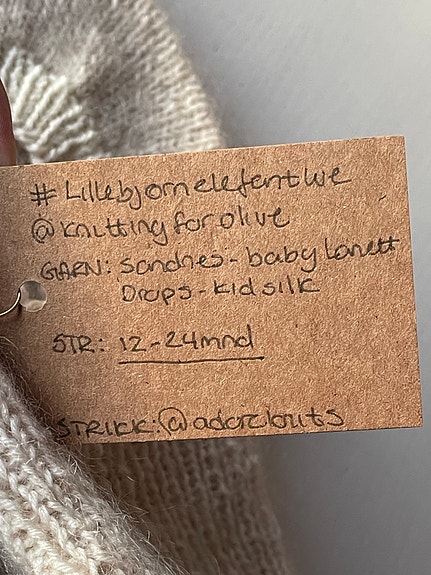 #Lillebjornelefantlue
@knitting for olive
GARN: Sandnes - baby lanett
Drops - kid silk
STR: 12-24mnd
STRIKK: @adorebnits